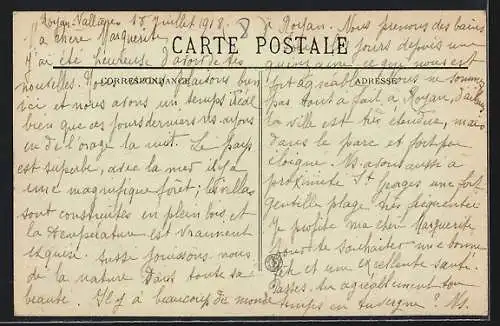 Royan-Vallières 18 juillet 1918.
Chère Marguerite
J'ai été heureuse d'avoir de tes
CARTE POSTALE
CORRESPONDANCE
nouvelles. Nous nous plaisons bien
ici et nous avons un temps idéal
bien que ces jours derniers ns. ayons
eu de l'orage la nuit. Le pays
est superbe, avec la mer il y a
une magnifique forêt; les villas
sont construites en plein bois, et
la température est vraiment
exquise. Aussi jouissons nous
de la nature dans toute sa
beauté. Il y a beaucoup de monde
à Royan. Nous prenons des bains
les jours depuis une
quinzaine ce qui nous est
ADRESSE
fort agréable. Nous ne sommes
pas tout à fait à Royan, d'ailleurs
la ville est très étendue, mais
dans le parc et fort peu
éloigné. Ns. avons aussi à
proximité St. Georges une fort
gentille plage très fréquentée
Je profite ma chère Marguerite
pour te souhaiter une bonne
fête et une excellente santé.
Passes-tu agréablement ton
temps en Auvergne? Ns.